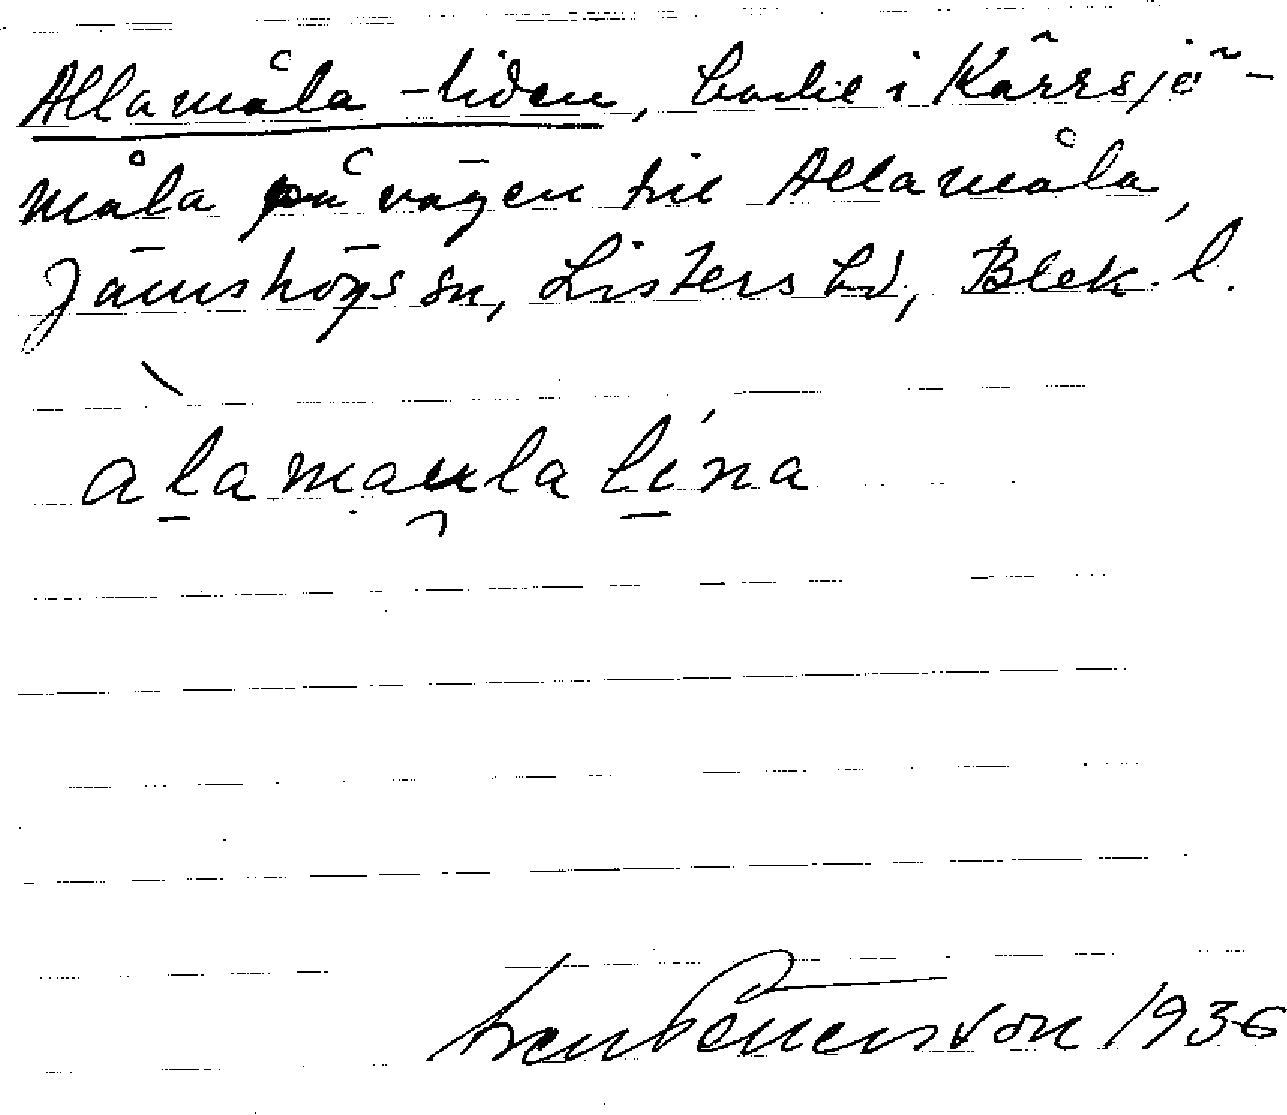 Allamåla-liden, backe i Kärrsjö-
måla på vägen till Allamåla,
Jämshögs sn, Listers hd, Blek. l.
alamaula lina
Sven Benson 1936